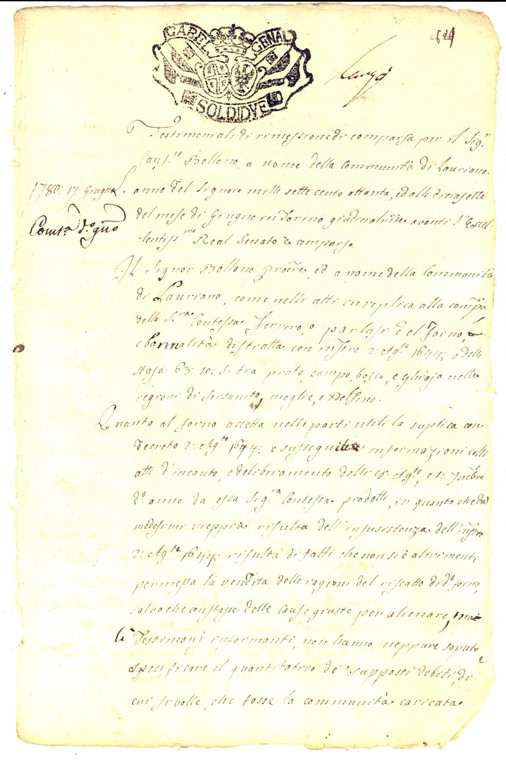 GABEL GENAL
SOLDIDVE
Testimoniali di remissione di comparsa per il Sig.r
Bollono, a nome della Communità di Lauriano
1780 17 Giugno
anno del Signore mille sette cento ottanta, ed alli diecisette
del mese di Giugno in Torino giudicialmente avanti l'Eccel-
lentiss.mo Real Senato è comparso
Il Signor Bollono Proc.re, ed a nome della Communità
di Lauriano, come nelli atti, in replica alla comp.sa
della Sig.ra Contessa Ferrero, o parlasi del Forno, e
bannalità distratta con 2 Ag.to 1644, o delle
63: 10: 5: tra prato, campo, bosco, e ghiaja nelle
regioni di moglie, e Delfino.
Quanto al forno accetta nelle parti utili la suplica con
Decreto 2: Ag.to 1644: e susseguite informazioni colli
atti d'incanto, e deliberamento delli Ag.to, e
d.o anno da essa Sig.ra Contessa prodotti, in quanto che da
medesimi neppure risulta dell'insussistenza dell'
2: Ag.to 1644: risulta di fatti che non si è altrimenti
permessa la vendita delle ragioni del riscatto di d.o forno,
salvo che constasse delle cause giuste per alienare, ma
li Testimonj informanti, non hanno neppure saputo
specificare il quantitativo de' supposti debiti, di
cui si volle, che fosse la communità caricata